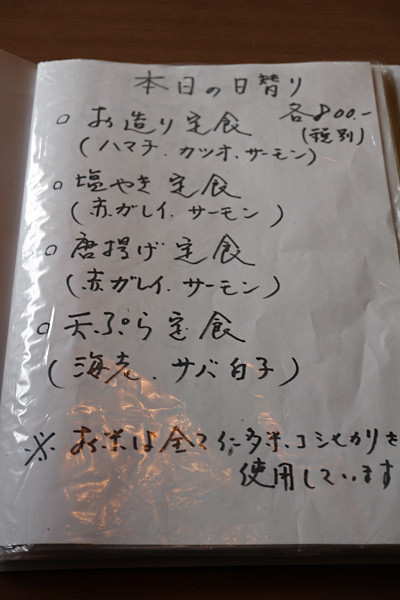 本日の日替り
○ お造り定食 各800.-
(税別)
(ハマチ、カツオ、サーモン)
○ 塩やき定食
(赤ガレイ、サーモン)
○ 唐揚げ定食
(赤ガレイ、サーモン)
○ 天ぷら定食
(海老、サバ白子)
※ お米は全て仁多米、コシヒカリを
使用しています